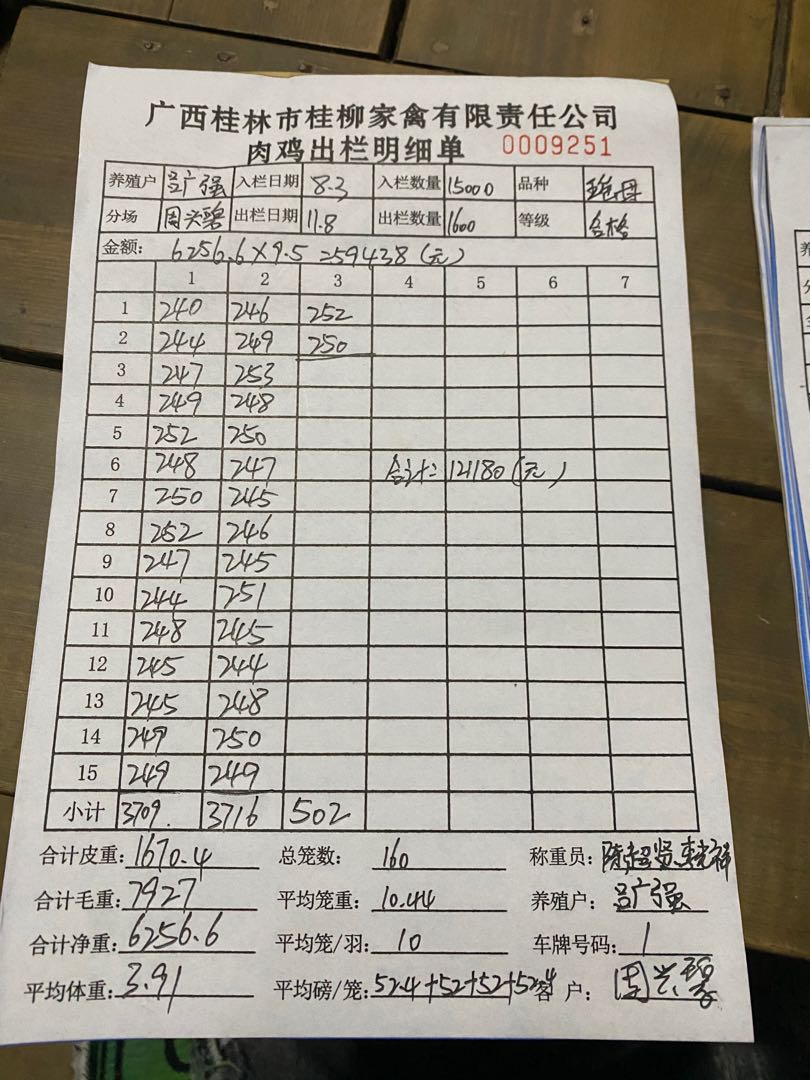 广西桂林市桂柳家禽有限责任公司
肉鸡出栏明细单 0009251
养殖户 广强 入栏日期 8.3 入栏数量 15000 品种
分场 周兴碧 出栏日期 11.8 出栏数量 1600 等级 合格
金额: 6256.6×9.5=59438(元)
1 2 3 4 5 6 7
1 240 246 252
2 244 249 250
3 247 253
4 249 248
5 252 250
6 248 247 合计:121180(元)
7 250 245
8 252 246
9 247 245
10 244 251
11 248 245
12 245 244
13 245 248
14 249 250
15 249 249
小计 3709. 3716 502
合计皮重: 1670.4 总笼数: 160 称重员: 陈超贤
合计毛重: 7927 平均笼重: 10.44 养殖户: 广强
合计净重: 6256.6 平均笼/羽: 10 车牌号码: 1
平均体重: 3.91 平均磅/笼: 52.4+52+52+52.4 客户: 周兴碧